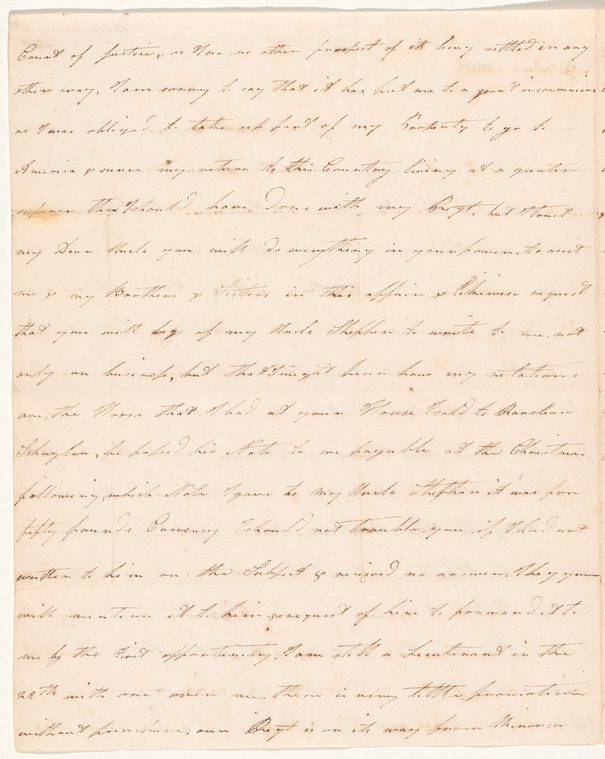 Court of Justice, as I see no other prospect of its being settled in any
other way. I am sorry to say that it has put me to a great inconvenience
as I was obliged to take up part of my Property to go to
America & since my return to this Country living at a greater
expence than I should have done with my Regt, but I trust
my Dear Uncle you will do everything in your power to assist
me & my Brothers & Sisters in this affair & likewise request
that you will beg of my Uncle Stephen to write to me, not
only on business, but that I might hear how my relations
are, the Horse that I had at your House I sold to Ranslear
Schuyler, he passed his Note to me payable at the Christmas
following, which Note I gave to my Uncle Stephen it was for
fifty pounds Currency I should not trouble you if I had not
written to him on the Subject & received no answer, they you
will mention it to him & request of him to forward it to
me by the first opportunity, I am still a Lieutenant in the
with one over me, there is very little promotion
without purchase, our Regt is on its way from Minorca